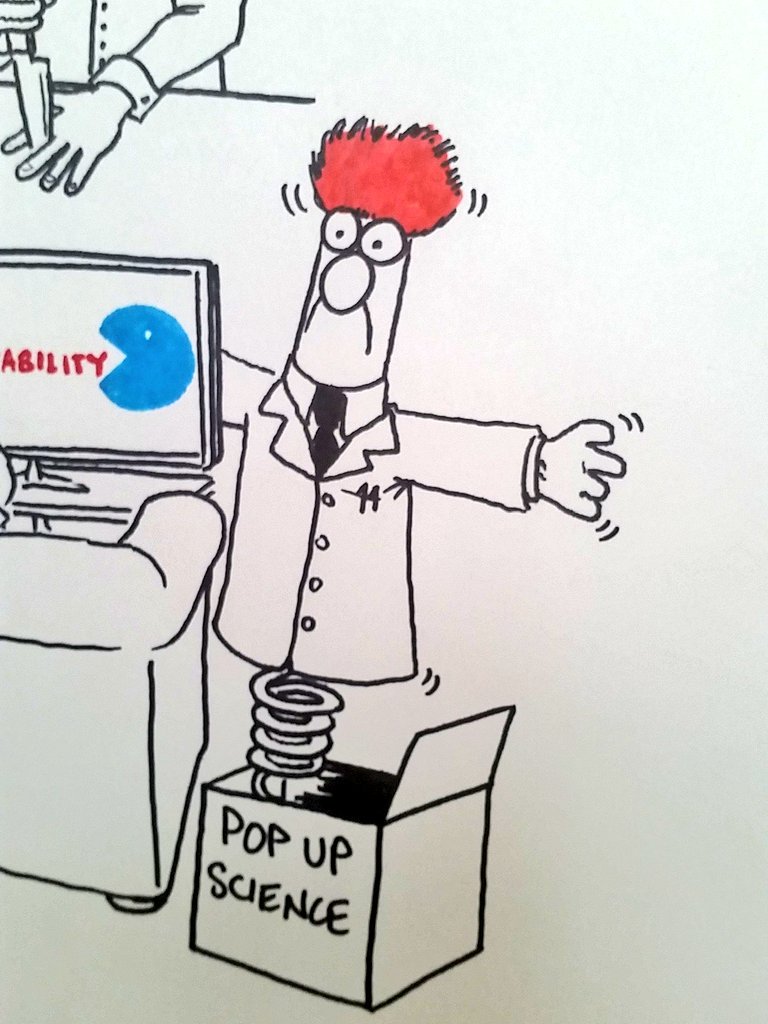 ABILITY
POP UP
SCIENCE